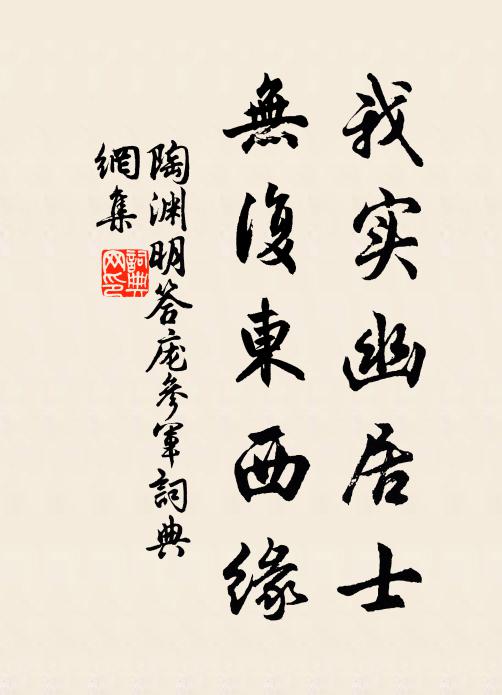 我实幽居士
無復東西缘
陶渊明答庞参军詞典
網集
詞典
网印